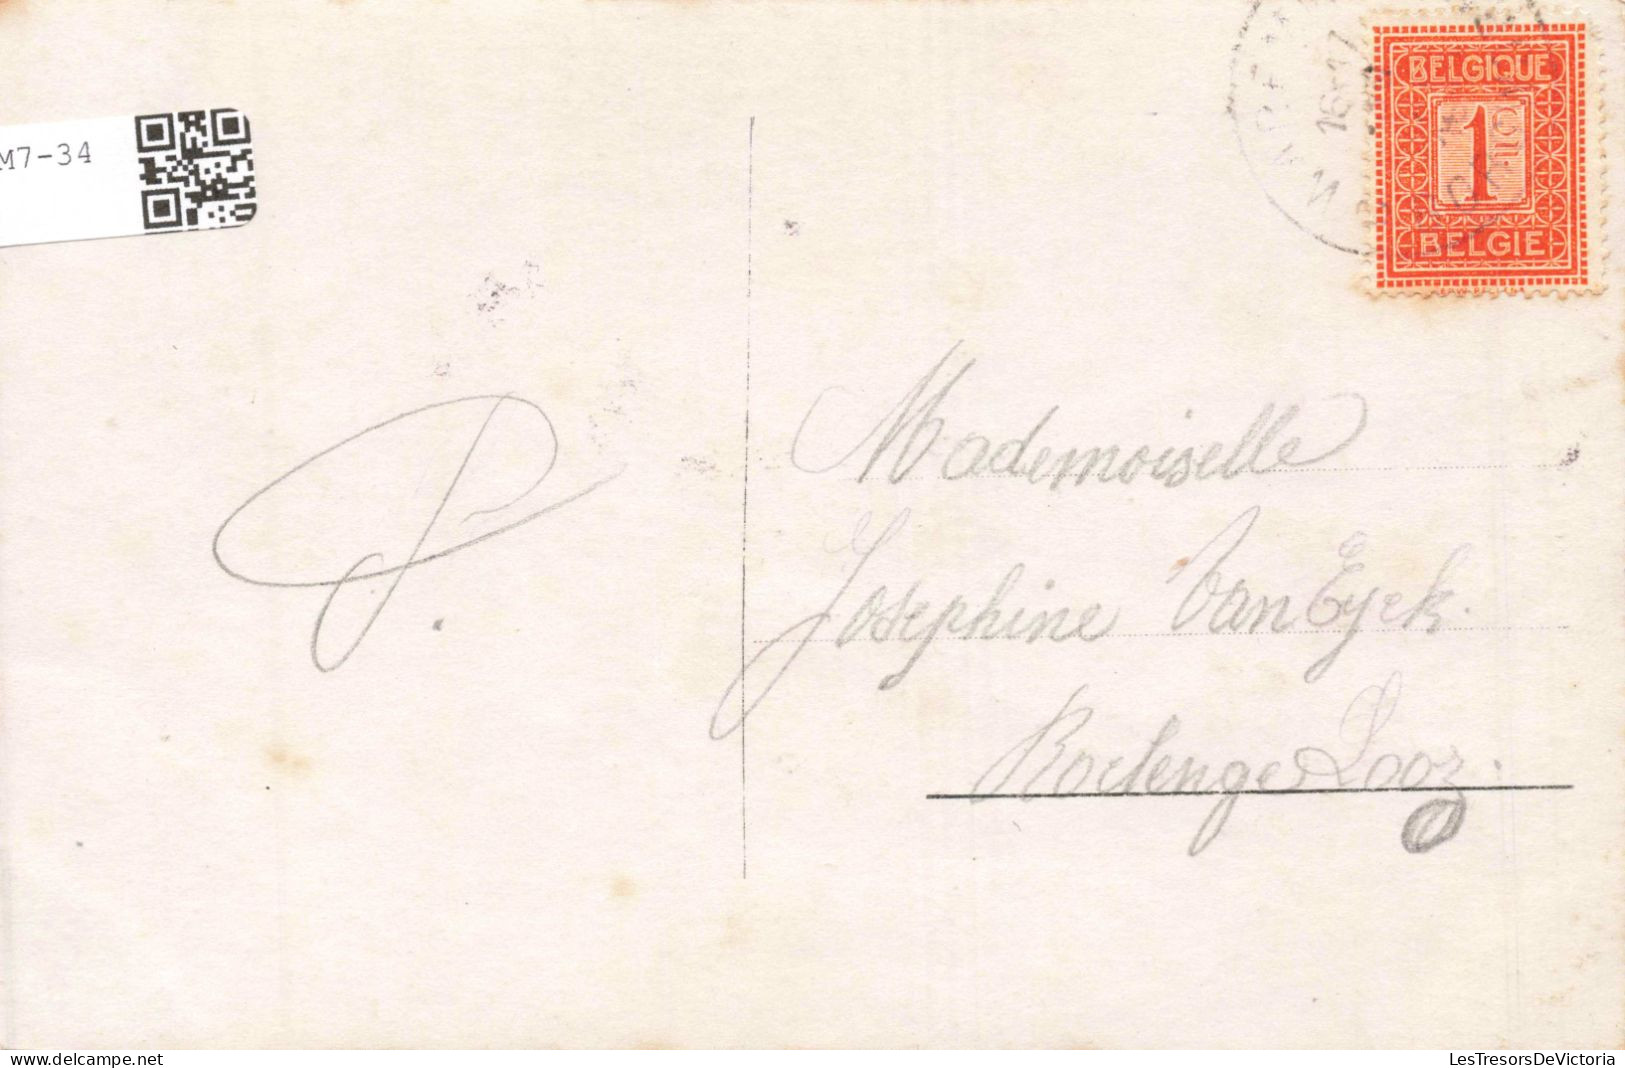 M7-34
BELGIQUE
1
BELGIE
16-17
Mademoiselle
Josephine Van Eyck.
Roclenge Looz.
P.
LesTresorsDeVictoria